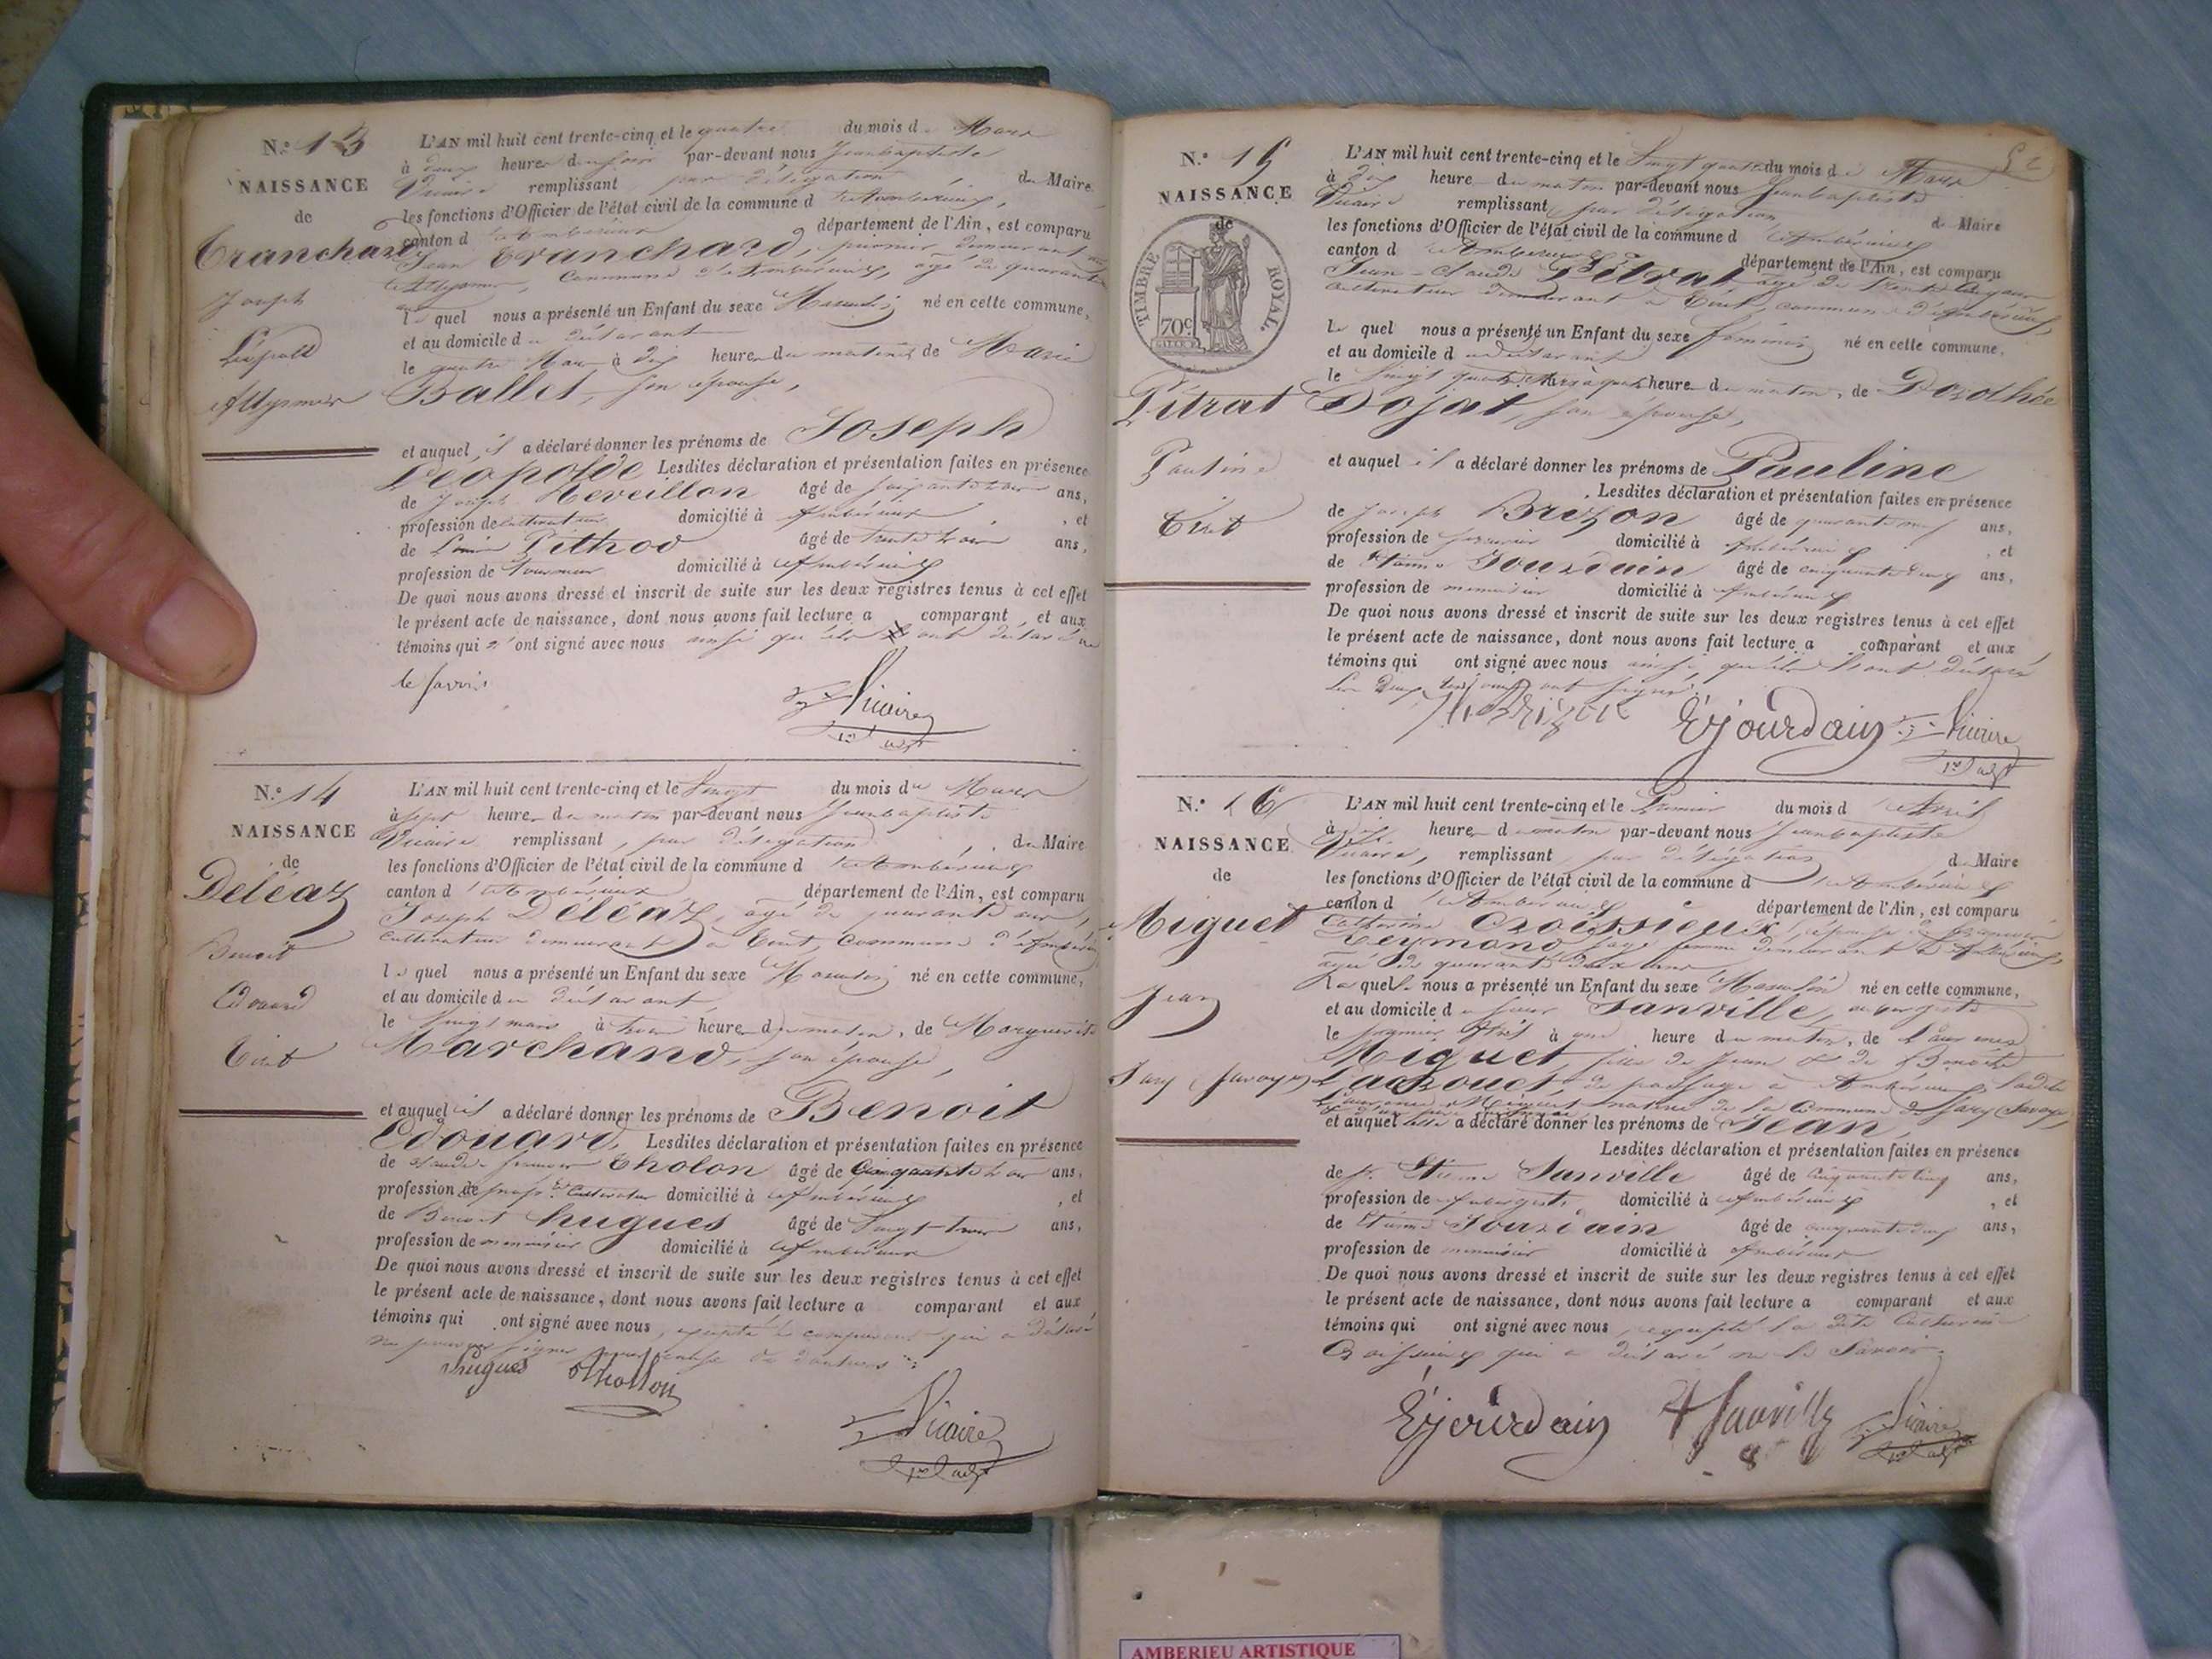 N.o 13
NAISSANCE
de
Tranchard
Joseph
Léopold
Allymoz
L'AN mil huit cent trente-cinq et le quatre du mois de Mars
à deux heures du soir par-devant nous Jeanbaptiste
Vicaire remplissant par délégation du Maire
les fonctions d'Officier de l'état civil de la commune d'Ambérieux,
canton d'Ambérieux département de l'Ain, est comparu
Jean Tranchard, demeurant
commune d'Ambérieux, âgé de quarante
lequel nous a présenté un Enfant du sexe Masculin né en cette commune,
et au domicile du déclarant
le quatre Mars à dix heures du matin de Marie
Ballet, son épouse,
et auquel il a déclaré donner les prénoms de Joseph
Léopolde Lesdites déclaration et présentation faites en présence
de Joseph Reveillon âgé de ans,
profession de cultivateur domicilié à Ambérieux, et
de Pithod âgé de trente trois ans,
profession de domicilié à Ambérieux
De quoi nous avons dressé et inscrit de suite sur les deux registres tenus à cet effet
le présent acte de naissance, dont nous avons fait lecture a comparant et aux
témoins qui n'ont signé avec nous ainsi qu'ils ont déclaré ne
le savoir
Vicaire
N.o 14
NAISSANCE
de
Déléaz
Benoit
Edouard
Tiret
L'AN mil huit cent trente-cinq et le Vingt du mois de Mars
à sept heures du matin par-devant nous Jeanbaptiste
Vicaire remplissant, par délégation du Maire
les fonctions d'Officier de l'état civil de la commune d'Ambérieux
canton d'Ambérieux département de l'Ain, est comparu
Joseph Déléaz, âgé de quarante ans,
cultivateur demeurant à Tiret, commune d'Ambérieux
lequel nous a présenté un Enfant du sexe Masculin né en cette commune,
et au domicile du déclarant
le Vingt mars à trois heures du matin, de Marguerite
Marchand, son épouse,
et auquel il a déclaré donner les prénoms de Benoit
Edouard, Lesdites déclaration et présentation faites en présence
de Claude Tholon âgé de Cinquante trois ans,
profession de cultivateur domicilié à Ambérieux, et
de Benoit hugues âgé de Vingt-trois ans,
profession de menuisier domicilié à Ambérieux
De quoi nous avons dressé et inscrit de suite sur les deux registres tenus à cet effet
le présent acte de naissance, dont nous avons fait lecture a comparant et aux
témoins qui ont signé avec nous, excepté le comparant qui a déclaré
ne pouvoir signer pour cause de douleurs
hugues Thollon
Vicaire
N.o 15
NAISSANCE
de
TIMBRE ROYAL.
70c.
Pitrat
Pauline
Tiret
L'AN mil huit cent trente-cinq et le Vingt quatre du mois de Mars
à dix heures du matin par-devant nous Jeanbaptiste
Vicaire remplissant par délégation du Maire
les fonctions d'Officier de l'état civil de la commune d'Ambérieux
canton d'Ambérieux département de l'Ain, est comparu
Jean-Claude Pitrat âgé de trente
cultivateur demeurant à Tiret, commune d'Ambérieux,
lequel nous a présenté un Enfant du sexe féminin né en cette commune,
et au domicile du déclarant
le Vingt quatre Mars à quatre heures du matin, de Dorothée
Dojat, son épouse,
et auquel il a déclaré donner les prénoms de Pauline
Lesdites déclaration et présentation faites en présence
de Joseph Brizon âgé de quarante neuf ans,
profession de domicilié à Ambérieux, et
de Etienne Jourdain âgé de cinquante deux ans,
profession de menuisier domicilié à Ambérieux
De quoi nous avons dressé et inscrit de suite sur les deux registres tenus à cet effet
le présent acte de naissance, dont nous avons fait lecture a comparant et aux
témoins qui ont signé avec nous ainsi, qu'ils l'ont déclaré
Les deux témoins ont signé.
Brizon Ejourdain Vicaire
N.o 16
NAISSANCE
de
Miguet
Jean
Jary (Savoye)
L'AN mil huit cent trente-cinq et le Premier du mois d'Avril
à dix heures du matin par-devant nous Jeanbaptiste
Vicaire, remplissant par délégation du Maire
les fonctions d'Officier de l'état civil de la commune d'Ambérieux
canton d'Ambérieux département de l'Ain, est comparu
Catherine Croissieux, épouse de
Reymond, sage femme demeurant à Ambérieux,
âgée de quarante deux ans
laquelle nous a présenté un Enfant du sexe Masculin né en cette commune,
et au domicile du sieur Janville, aubergiste
le premier Avril à une heure du matin, de
Miguet, fille de Jean & de Benoite
de passage à Ambérieux, ladite
Miguet native de la Commune de Jary (Savoye)
et auquel elle a déclaré donner les prénoms de Jean,
Lesdites déclaration et présentation faites en présence
de Etienne Janville âgé de cinquante cinq ans,
profession de Aubergiste domicilié à Ambérieux, et
de Etienne Jourdain âgé de cinquante deux ans,
profession de menuisier domicilié à Ambérieux
De quoi nous avons dressé et inscrit de suite sur les deux registres tenus à cet effet
le présent acte de naissance, dont nous avons fait lecture a comparant et aux
témoins qui ont signé avec nous, excepté la dite Catherine
Croissieux qui a déclaré ne le Savoir.
Ejourdain Janville Vicaire
AMBERIEU ARTISTIQUE